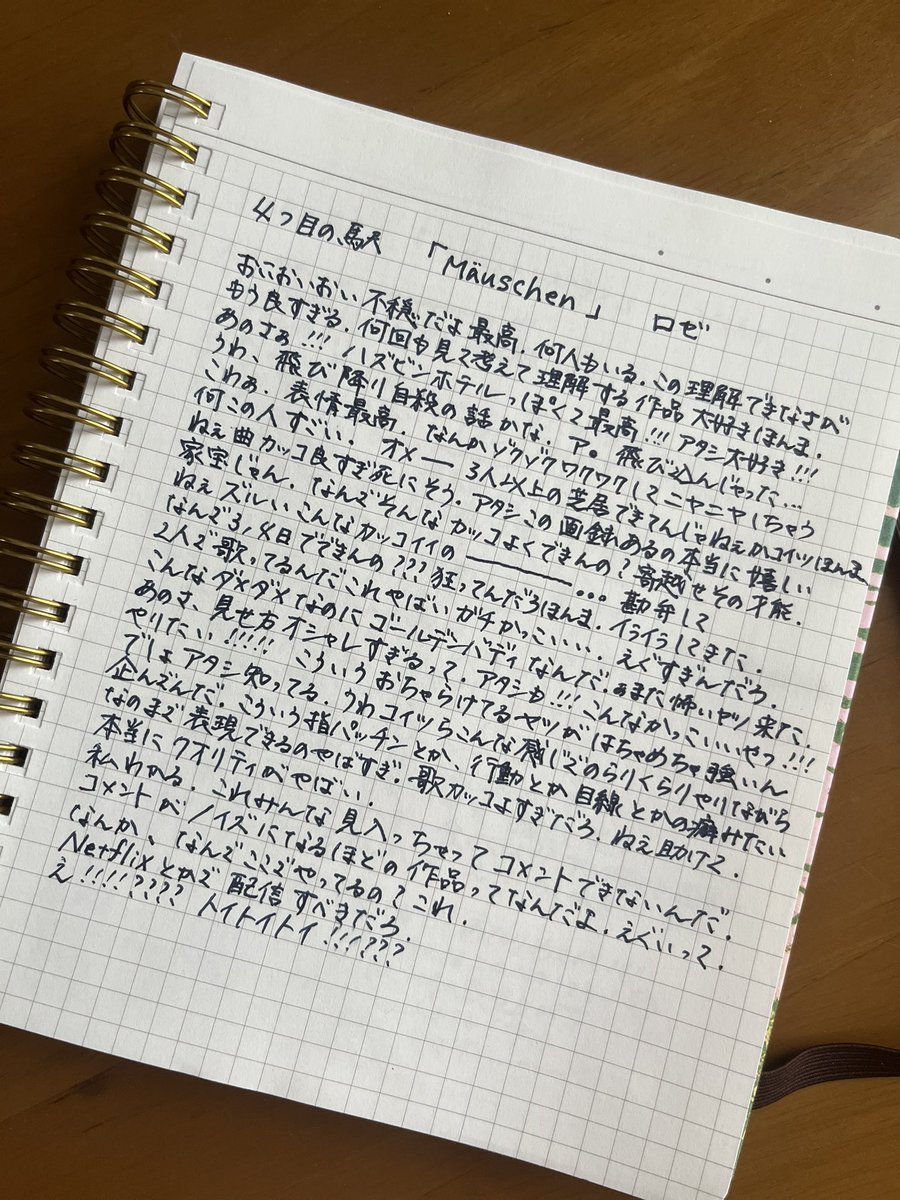 4つ目の駅 「Mäuschen」 ロゼ
おいおいおい 不穏だよ最高. 何人もいる. この理解できなさが
もう良すぎる. 何回も見て考えて理解する作品 大好きほんま.
あのさぁ!!! ハズビンホテルっぽくて最高!!! アタシ大好き!!!
うわ、飛び降り自殺の話かな. ア。飛び込んじゃった...
こわぁ. 表情最高. なんかゾクゾクワクワクしてニヤニヤしちゃう
何この人すごい. オメー 3人以上の芝居できてんじゃねぇかコイツほんま
ねぇ曲カッコ良すぎ死にそう. アタシこの画録あるの本当に嬉しい
家宝じゃん. なんでそんなカッコよくできんの? 寄越せその才能.
ねぇズルいこんなカッコイイの―――... 勘弁して
なんで3,4日でできんの??? 狂ってんだろほんま. イライラしてきた.
2人で歌ってるんだこれやばいガチかっこいい. えぐすぎんだろ
こんなダメダメなのにゴールデンバディなんだ. ぁまた怖いヤツ来た.
あのさ、見せ方オシャレすぎるって. アタシも!!! こんなかっこいいやつ!!!
やりたい!!!!! こういうおちゃらけてるヤツがはちゃめちゃ強いん
でしょアタシ知ってる. うわコイツらこんな感じでのらりくらりやりながら
企んでんだ. こういう指パッチンとか、行動とか目線とかの癖みたい
なのまで表現できるのやばすぎ. 歌カッコよすぎだろ. ねぇ助けて.
本当にクオリティがやばい.
私わかる. これみんな見入っちゃってコメントできないんだ
コメントがノイズになるほどの作品ってなんだよ. えぐいって.
なんか、なんでここでやってるの? これ.
Netflixとかで配信すべきだろ.
え!!!!???? トイトイトイ!!!???